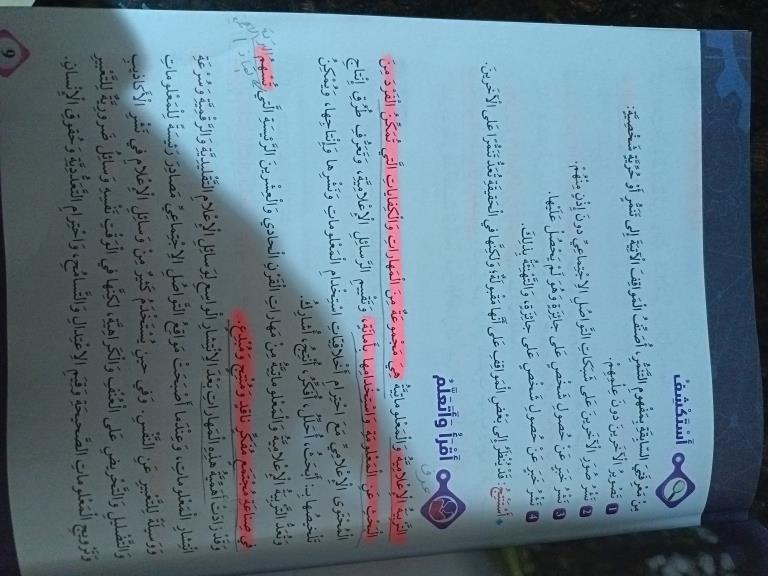 أَسْتَكْشِفُ
مِنْ مَعْرِفَتِيَ السّابِقَةِ بِمَفْهومِ التَّنَمُّرِ، أُصَنِّفُ الْمَواقِفَ الْآتِيَةَ إِلى تَنَمُّرٍ أَوْ حُرِّيَّةٍ شَخْصِيَّةٍ:
1 تَصْويرُ الْآخَرينَ دونَ عِلْمِهِمْ.
2 نَشْرُ صُوَرِ الْآخَرينَ عَلى شَبَكاتِ التَّواصُلِ الِاجْتِماعِيِّ دونَ إِذْنٍ مِنْهُمْ.
3 نَشْرُ خَبَرٍ عَنْ حُصولِ شَخْصٍ عَلى جائِزَةٍ وَهُوَ لَمْ يَحْصُلْ عَلَيْها.
4 نَشْرُ خَبَرٍ عَنْ حُصولِ شَخْصٍ عَلى جائِزَةٍ، وَالتَّهْنِئَةُ بِذلِكَ.
أَسْتَنْتِجُ: قَدْ يُنْظَرُ إِلى بَعْضِ الْمَواقِفِ عَلى أَنَّها مَقْبولَةٌ، وَلكِنَّها في الْحَقيقَةِ تُعَدُّ تَنَمُّرًا عَلى الْآخَرينَ.
أَقْرَأُ وَأَتَعَلَّمُ
التَّرْبِيَةُ الْإِعْلامِيَّةُ وَالْمَعْلوماتِيَّةُ هِيَ مَجْموعَةٌ مِنَ الْمَهاراتِ وَالْكِفاياتِ الَّتي تُمَكِّنُ الْفَرْدَ مِنَ
الْبَحْثِ عَنِ الْمَعْلومَةِ وَاسْتِخْدامِها بِأَمانَةٍ، وَتَقْييمِ الرَّسائِلِ الْإِعْلامِيَّةِ، وَتَعَرُّفِ طُرُقِ إِنْتاجِ
الْمُحْتَوى الْإِعْلامِيِّ مَعَ احْتِرامِ أَخْلاقِيّاتِ اسْتِخْدامِ الْمَعْلوماتِ وَنَشْرِها وَإِنْتاجِها، وَيُمْكِنُ
تَلْخيصُها بِـ: أَبْحَثُ، أُحَلِّلُ، أُفَكِّرُ، أُنْتِجُ، أُشارِكُ.
وَتُعَدُّ التَّرْبِيَةُ الْإِعْلامِيَّةُ وَالْمَعْلوماتِيَّةُ مِنْ مَهاراتِ الْقَرْنِ الْحادي وَالْعِشْرينَ الرَّئيسَةِ الَّتي تُسْهِمُ
في صِناعَةِ مُجْتَمَعٍ مُفَكِّرٍ ناقِدٍ وَمُنْتِجٍ وَمُبْدِعٍ.
وَقَدْ زادَتْ أَهَمِّيَّةُ هذِهِ الْمَهاراتِ بَعْدَ الِانْتِشارِ الْواسِعِ لِوَسائِلِ الْإِعْلامِ التَّقْليدِيَّةِ وَالرَّقْمِيَّةِ وَسُرْعَةِ
انْتِشارِ الْمَعْلوماتِ، وَعِنْدَما أَصْبَحَتْ مَواقِعُ التَّواصُلِ الِاجْتِماعِيِّ مَصادِرَ رَئيسَةً لِلْمَعْلوماتِ
وَوَسيلَةً لِلتَّعْبيرِ عَنِ النَّفْسِ. وَفي حينِ يَسْتَخْدِمُ كَثيرٌ مِنْ وَسائِلِ الْإِعْلامِ في نَشْرِ الْأَكاذيبِ
وَالتَّضْليلِ وَالتَّحْريضِ عَلى الْعُنْفِ وَالْكَراهِيَةِ، لكِنَّها في الْوَقْتِ نَفْسِهِ وَسائِلُ ضَرورِيَّةٌ لِلتَّعْبيرِ
وَتَرْويجِ الْمَعْلوماتِ الصَّحيحَةِ وَقِيَمِ الِاعْتِدالِ وَالتَّسامُحِ، وَاحْتِرامِ التَّعَدُّدِيَّةِ وَحُقوقِ الْإِنْسانِ.
9